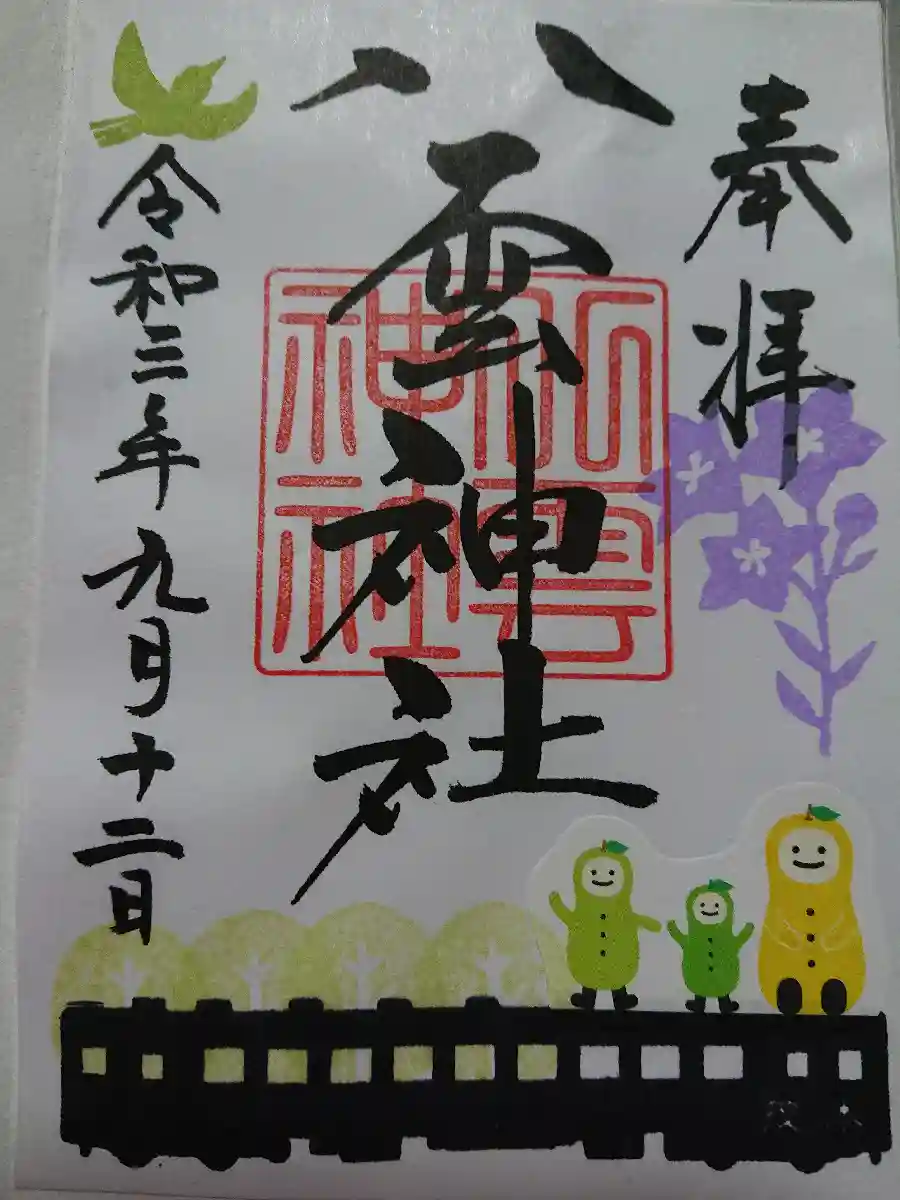 奉拝
八雲神社
八雲神社
令和三年九月十二日